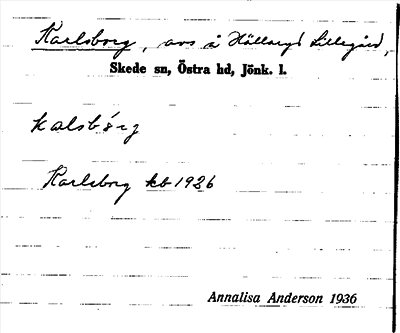 Karlsborg, avs å Hällaryd Lillegård,
Skede sn, Östra hd, Jönk. l.
kalsbórg
Karlsborg kb 1926
Annalisa Anderson 1936